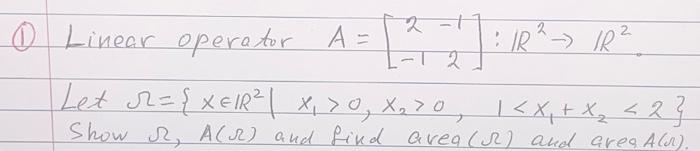 ① Linear operator A = [2 -1; -1 2] : ℝ² → ℝ².
Let Ω = { x ∈ ℝ² | x₁ > 0, x₂ > 0, 1 < x₁ + x₂ < 2 }
Show Ω, A(Ω) and find area(Ω) and area A(Ω).